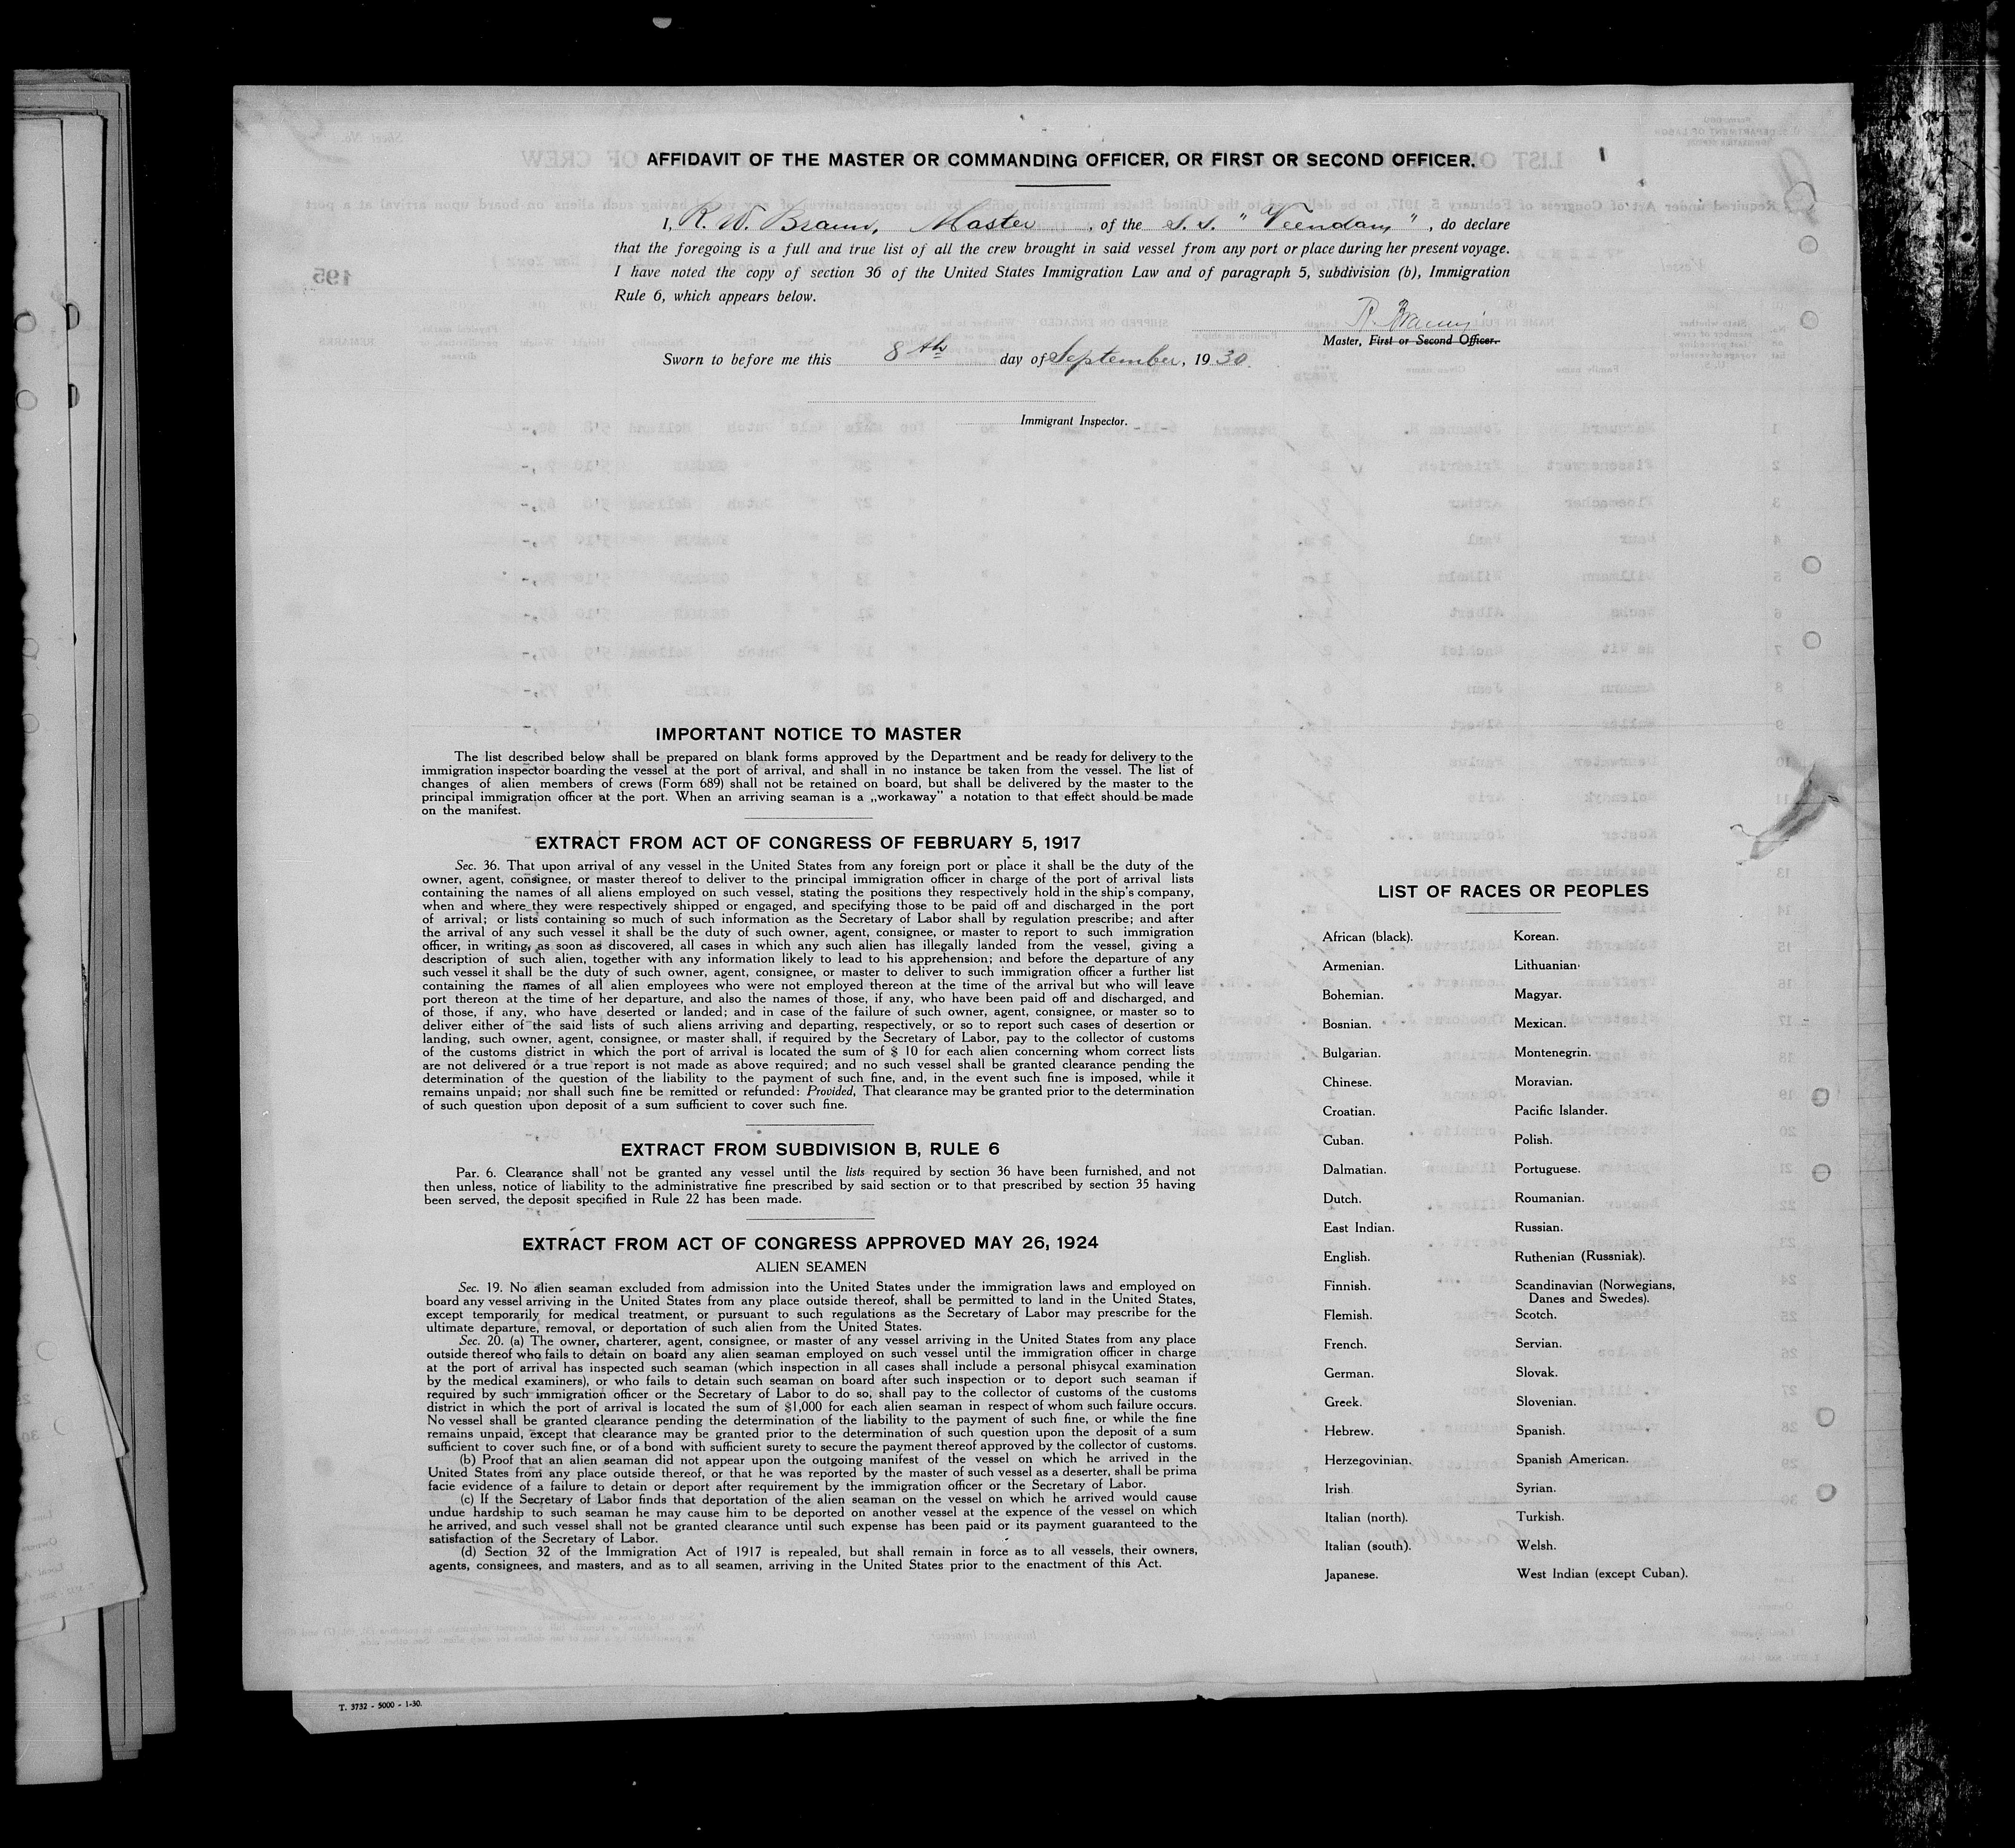 AFFIDAVIT OF THE MASTER OR COMMANDING OFFICER, OR FIRST OR SECOND OFFICER.
I, R. W. Braun, Master, of the S. S. "Veendam", do declare
that the foregoing is a full and true list of all the crew brought in said vessel from any port or place during her present voyage.
I have noted the copy of section 36 of the United States Immigration Law and of paragraph 5, subdivision (b), Immigration
Rule 6, which appears below.
Master, First or Second Officer.
Sworn to before me this 8th day of September, 1930.
Immigrant Inspector.
IMPORTANT NOTICE TO MASTER
The list described below shall be prepared on blank forms approved by the Department and be ready for delivery to the
immigration inspector boarding the vessel at the port of arrival, and shall in no instance be taken from the vessel. The list of
changes of alien members of crews (Form 689) shall not be retained on board, but shall be delivered by the master to the
principal immigration officer at the port. When an arriving seaman is a „workaway” a notation to that effect should be made
on the manifest.
EXTRACT FROM ACT OF CONGRESS OF FEBRUARY 5, 1917
Sec. 36. That upon arrival of any vessel in the United States from any foreign port or place it shall be the duty of the
owner, agent, consignee, or master thereof to deliver to the principal immigration officer in charge of the port of arrival lists
containing the names of all aliens employed on such vessel, stating the positions they respectively hold in the ship's company,
when and where they were respectively shipped or engaged, and specifying those to be paid off and discharged in the port
of arrival; or lists containing so much of such information as the Secretary of Labor shall by regulation prescribe; and after
the arrival of any such vessel it shall be the duty of such owner, agent, consignee, or master to report to such immigration
officer, in writing, as soon as discovered, all cases in which any such alien has illegally landed from the vessel, giving a
description of such alien, together with any information likely to lead to his apprehension; and before the departure of any
such vessel it shall be the duty of such owner, agent, consignee, or master to deliver to such immigration officer a further list
containing the names of all alien employees who were not employed thereon at the time of the arrival but who will leave
port thereon at the time of her departure, and also the names of those, if any, who have been paid off and discharged, and
of those, if any, who have deserted or landed; and in case of the failure of such owner, agent, consignee, or master so to
deliver either of the said lists of such aliens arriving and departing, respectively, or so to report such cases of desertion or
landing, such owner, agent, consignee, or master shall, if required by the Secretary of Labor, pay to the collector of customs
of the customs district in which the port of arrival is located the sum of $ 10 for each alien concerning whom correct lists
are not delivered or a true report is not made as above required; and no such vessel shall be granted clearance pending the
determination of the question of the liability to the payment of such fine, and, in the event such fine is imposed, while it
remains unpaid; nor shall such fine be remitted or refunded: Provided, That clearance may be granted prior to the determination
of such question upon deposit of a sum sufficient to cover such fine.
EXTRACT FROM SUBDIVISION B, RULE 6
Par. 6. Clearance shall not be granted any vessel until the lists required by section 36 have been furnished, and not
then unless, notice of liability to the administrative fine prescribed by said section or to that prescribed by section 35 having
been served, the deposit specified in Rule 22 has been made.
EXTRACT FROM ACT OF CONGRESS APPROVED MAY 26, 1924
ALIEN SEAMEN
Sec. 19. No alien seaman excluded from admission into the United States under the immigration laws and employed on
board any vessel arriving in the United States from any place outside thereof, shall be permitted to land in the United States,
except temporarily for medical treatment, or pursuant to such regulations as the Secretary of Labor may prescribe for the
ultimate departure, removal, or deportation of such alien from the United States.
Sec. 20. (a) The owner, charterer, agent, consignee, or master of any vessel arriving in the United States from any place
outside thereof who fails to detain on board any alien seaman employed on such vessel until the immigration officer in charge
at the port of arrival has inspected such seaman (which inspection in all cases shall include a personal phisycal examination
by the medical examiners), or who fails to detain such seaman on board after such inspection or to deport such seaman if
required by such immigration officer or the Secretary of Labor to do so, shall pay to the collector of customs of the customs
district in which the port of arrival is located the sum of $1,000 for each alien seaman in respect of whom such failure occurs.
No vessel shall be granted clearance pending the determination of the liability to the payment of such fine, or while the fine
remains unpaid, except that clearance may be granted prior to the determination of such question upon the deposit of a sum
sufficient to cover such fine, or of a bond with sufficient surety to secure the payment thereof approved by the collector of customs.
(b) Proof that an alien seaman did not appear upon the outgoing manifest of the vessel on which he arrived in the
United States from any place outside thereof, or that he was reported by the master of such vessel as a deserter, shall be prima
facie evidence of a failure to detain or deport after requirement by the immigration officer or the Secretary of Labor.
(c) If the Secretary of Labor finds that deportation of the alien seaman on the vessel on which he arrived would cause
undue hardship to such seaman he may cause him to be deported on another vessel at the expence of the vessel on which
he arrived, and such vessel shall not be granted clearance until such expense has been paid or its payment guaranteed to the
satisfaction of the Secretary of Labor.
(d) Section 32 of the Immigration Act of 1917 is repealed, but shall remain in force as to all vessels, their owners,
agents, consignees, and masters, and as to all seamen, arriving in the United States prior to the enactment of this Act.
LIST OF RACES OR PEOPLES
African (black).
Armenian.
Bohemian.
Bosnian.
Bulgarian.
Chinese.
Croatian.
Cuban.
Dalmatian.
Dutch.
East Indian.
English.
Finnish.
Flemish.
French.
German.
Greek.
Hebrew.
Herzegovinian.
Irish
Italian (north).
Italian (south).
Japanese.
Korean.
Lithuanian.
Magyar.
Mexican.
Montenegrin.
Moravian.
Pacific Islander.
Polish.
Portuguese.
Roumanian.
Russian.
Ruthenian (Russniak).
Scandinavian (Norwegians,
Danes and Swedes).
Scotch.
Servian.
Slovak.
Slovenian.
Spanish.
Spanish American.
Syrian.
Turkish.
Welsh.
West Indian (except Cuban).
T. 3732 - 5000 - 1-30.